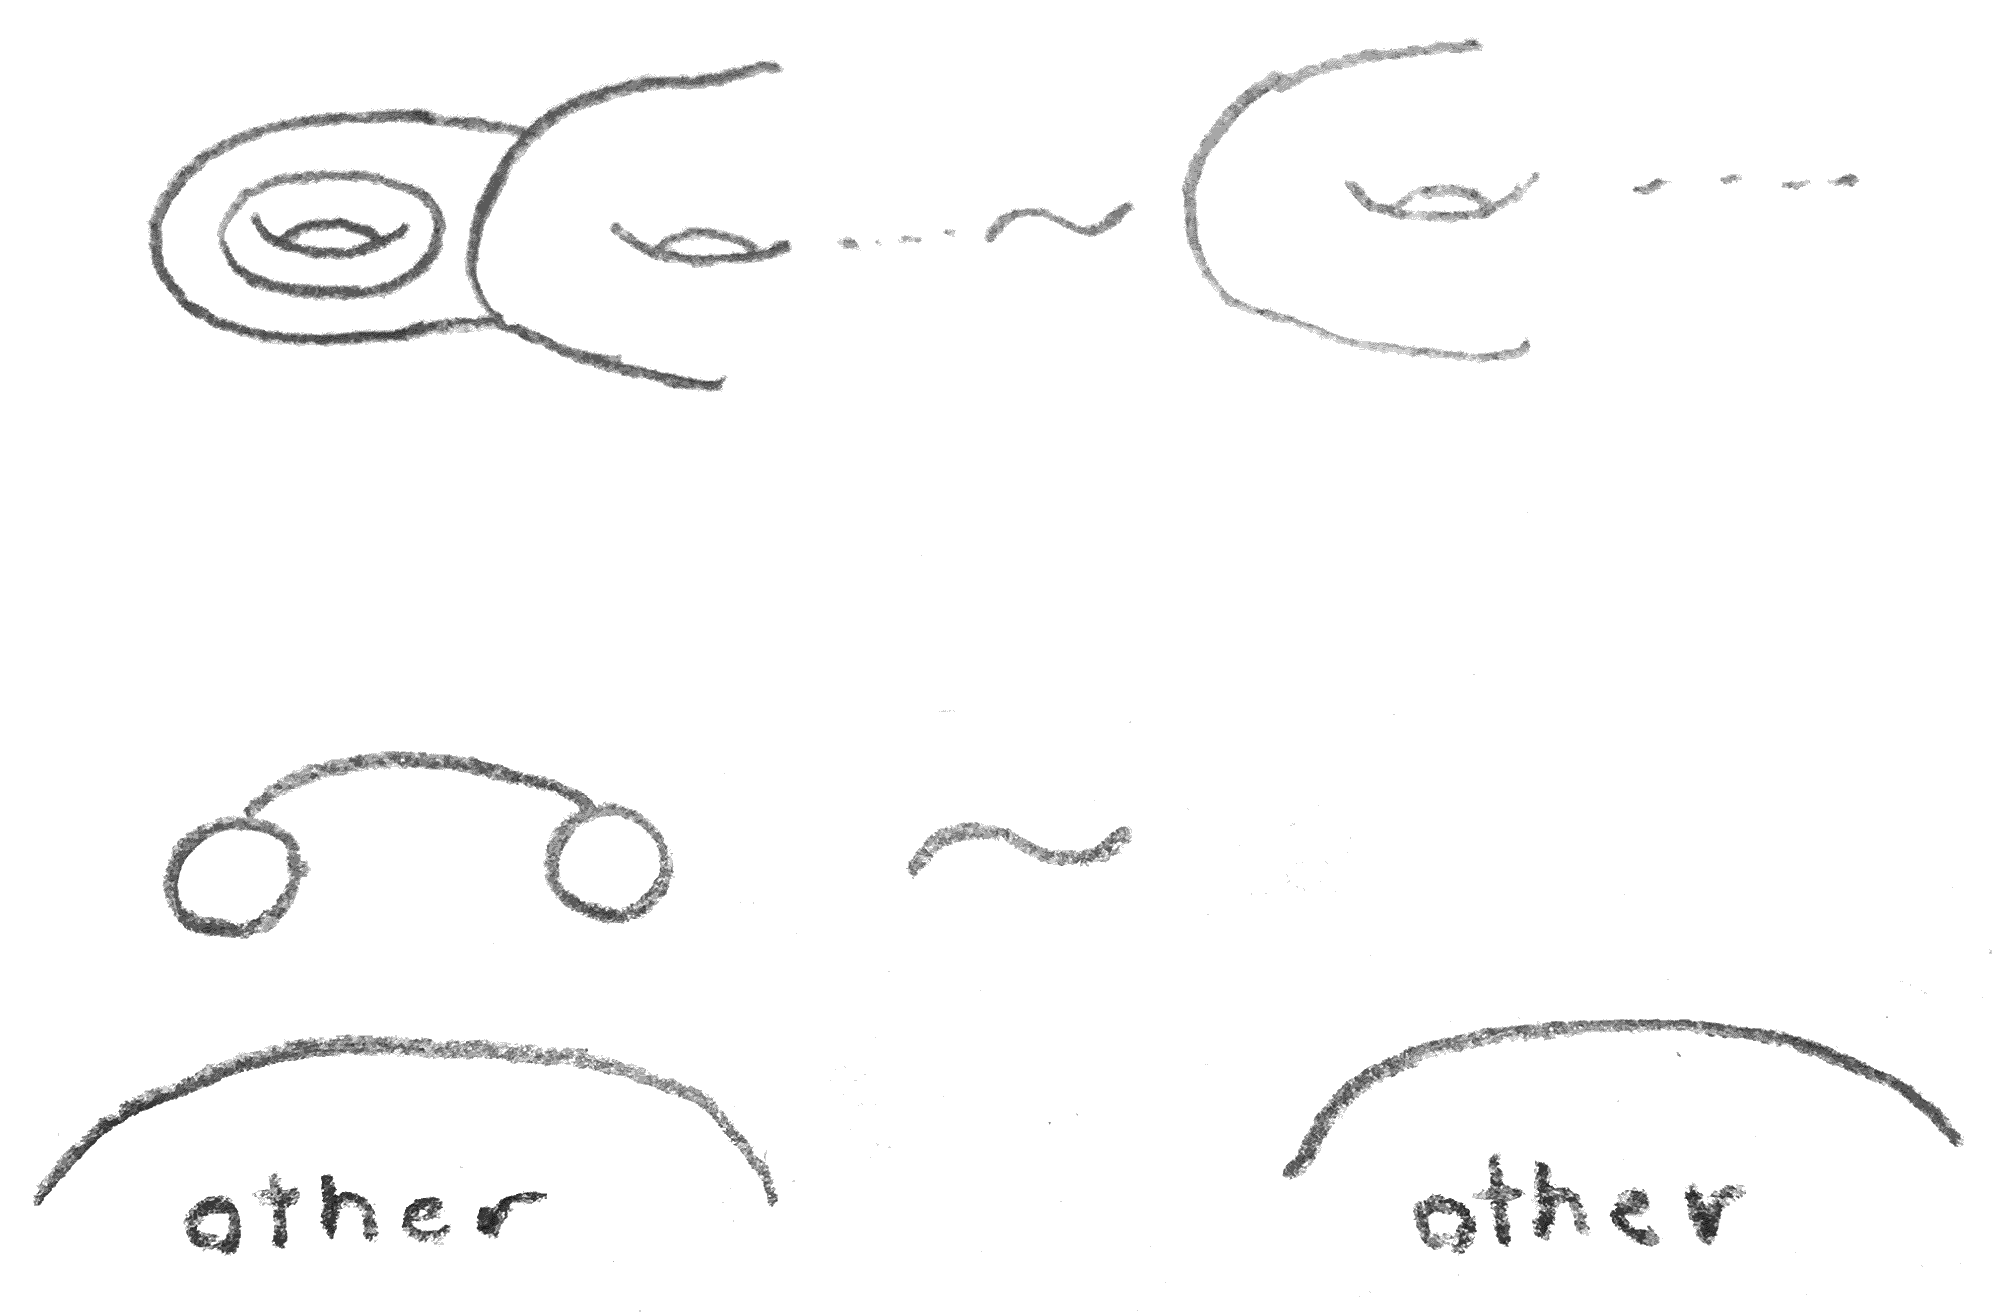 other other